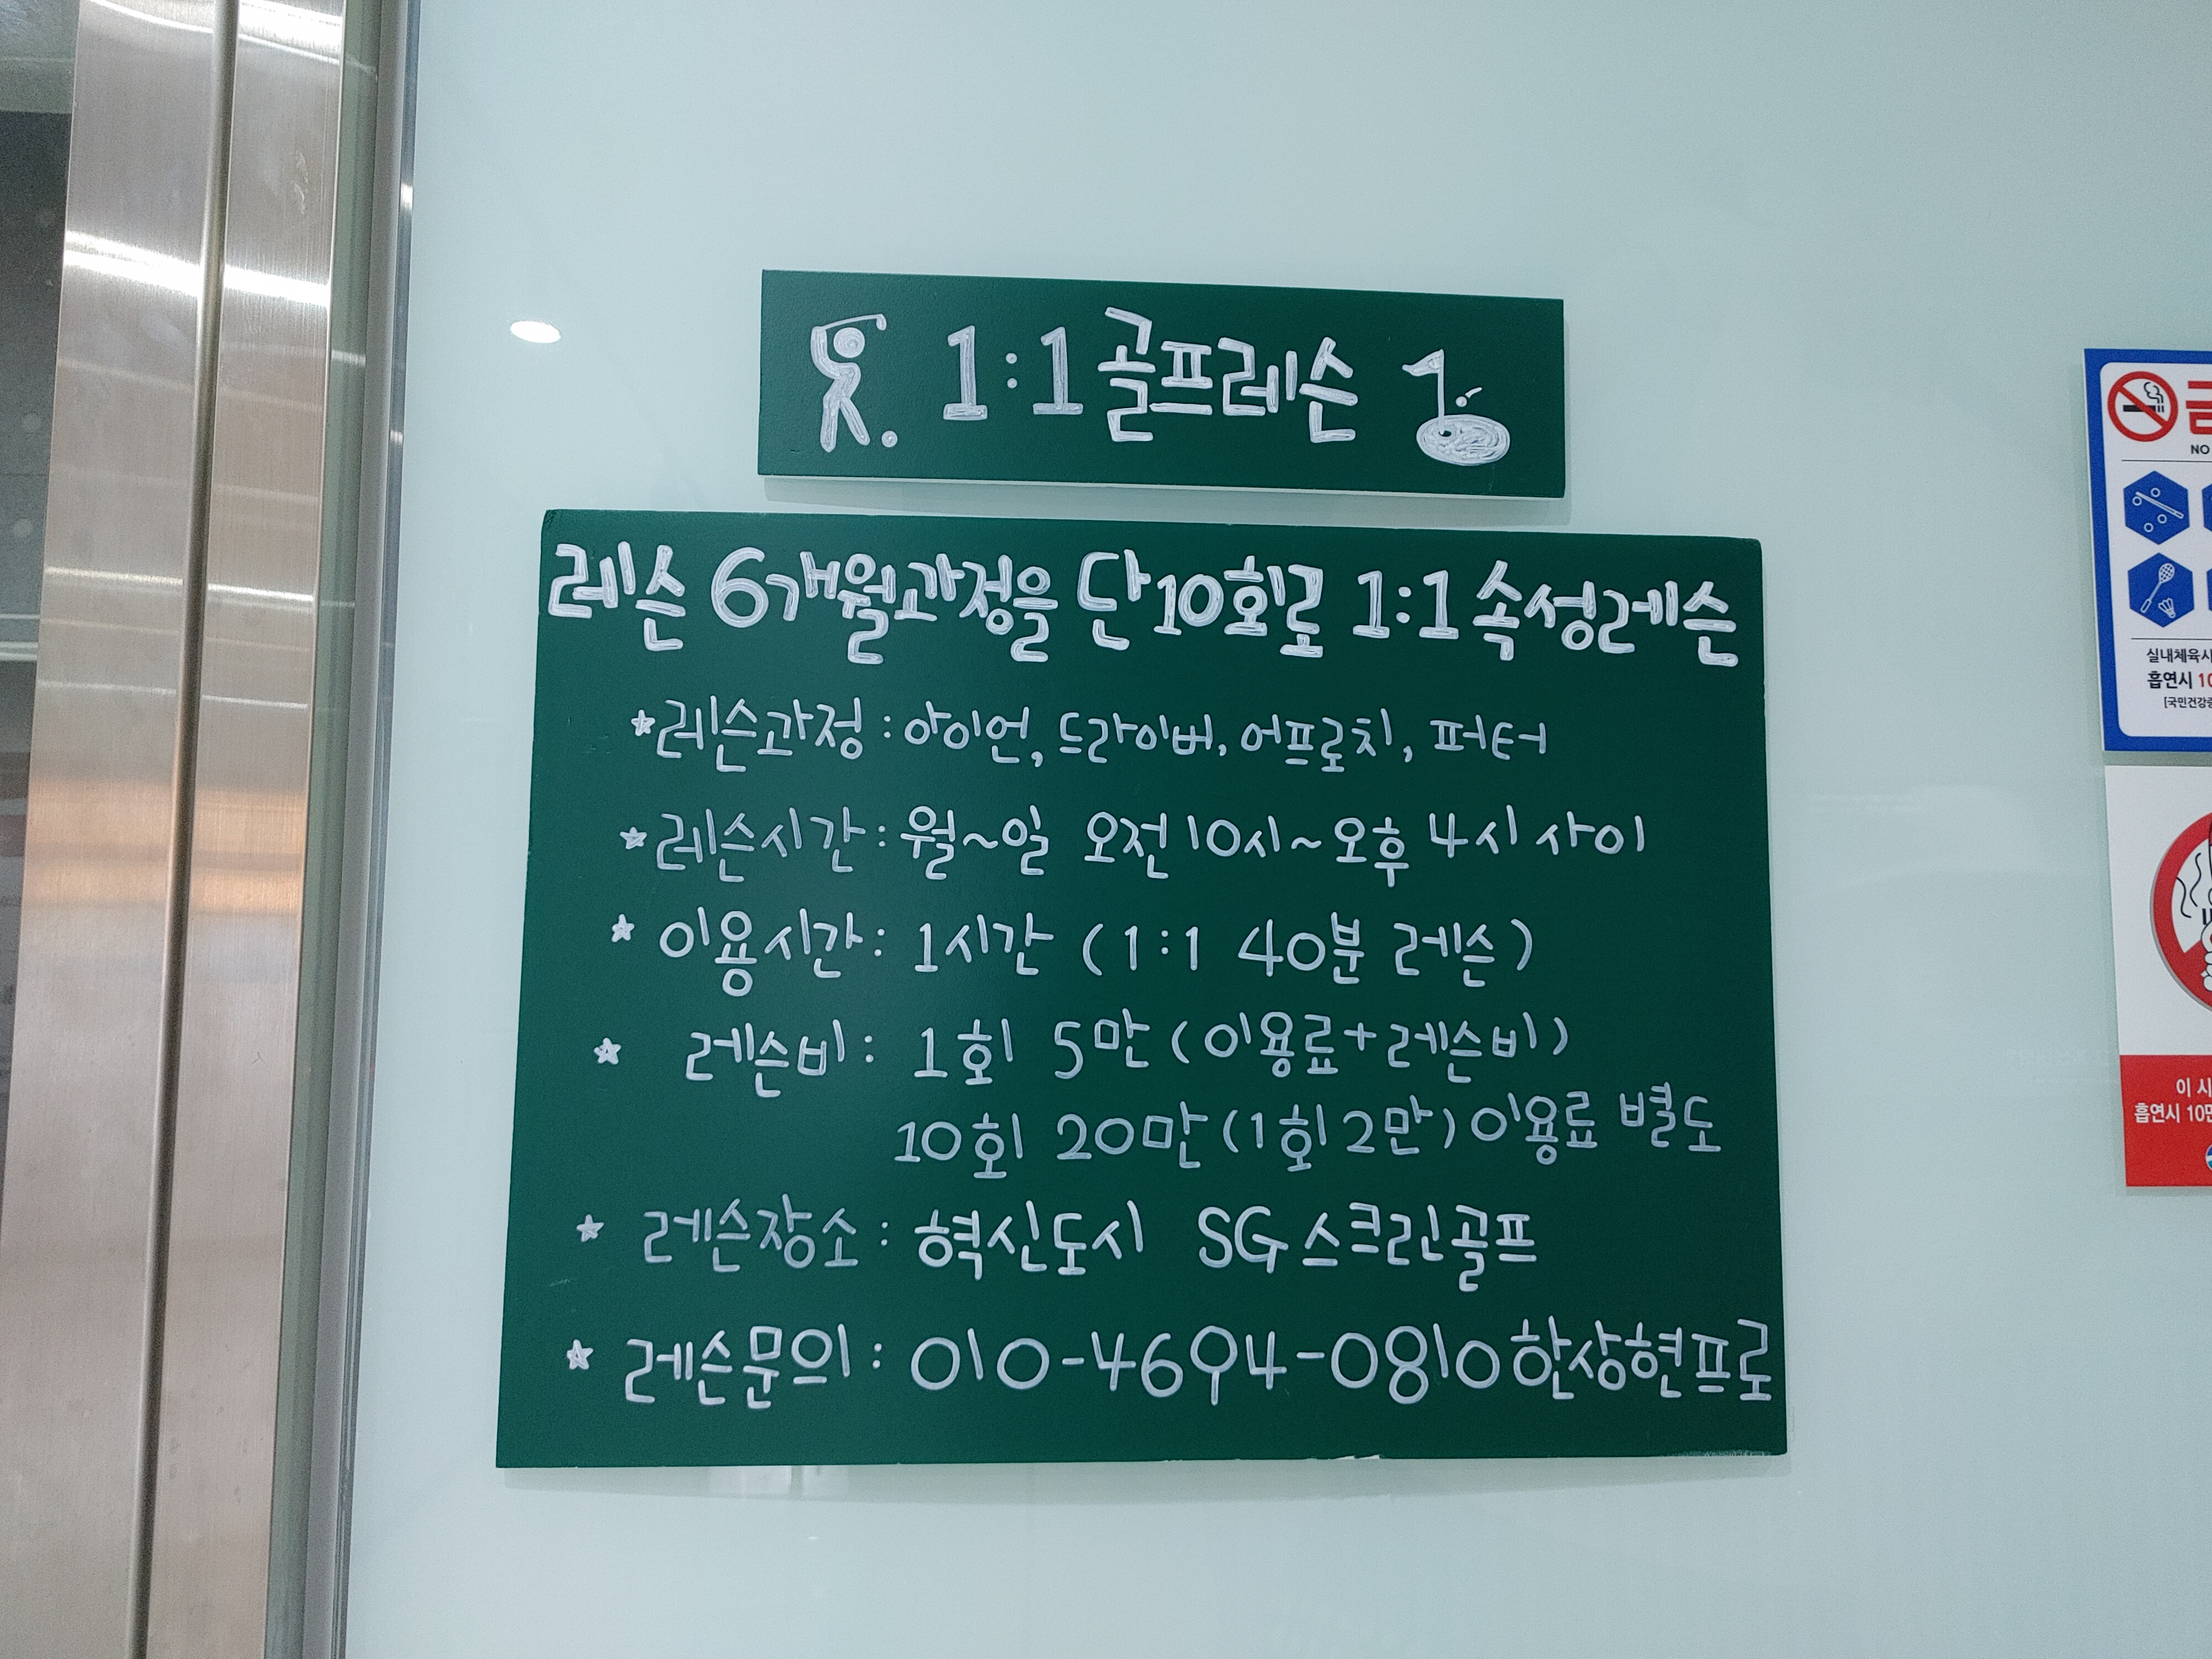 1:1 골프레슨
레슨 6개월과정을 단10회로 1:1 속성레슨
*레슨과정:아이언, 드라이버, 어프로치, 퍼터
*레슨시간:월~일 오전10시~오후 4시 사이
*이용시간: 1시간 (1:1 40분 레슨)
* 레슨비: 1회 5만(이용료+레슨비)
10회 20만(1회2만)이용료 별도
* 레슨장소: 혁신도시 SG스크린골프
* 레슨문의: 010-4694-0810한상현프로
금
NO
실내체육시
흡연시 10
[국민건강증
이 시
흡연시 10만